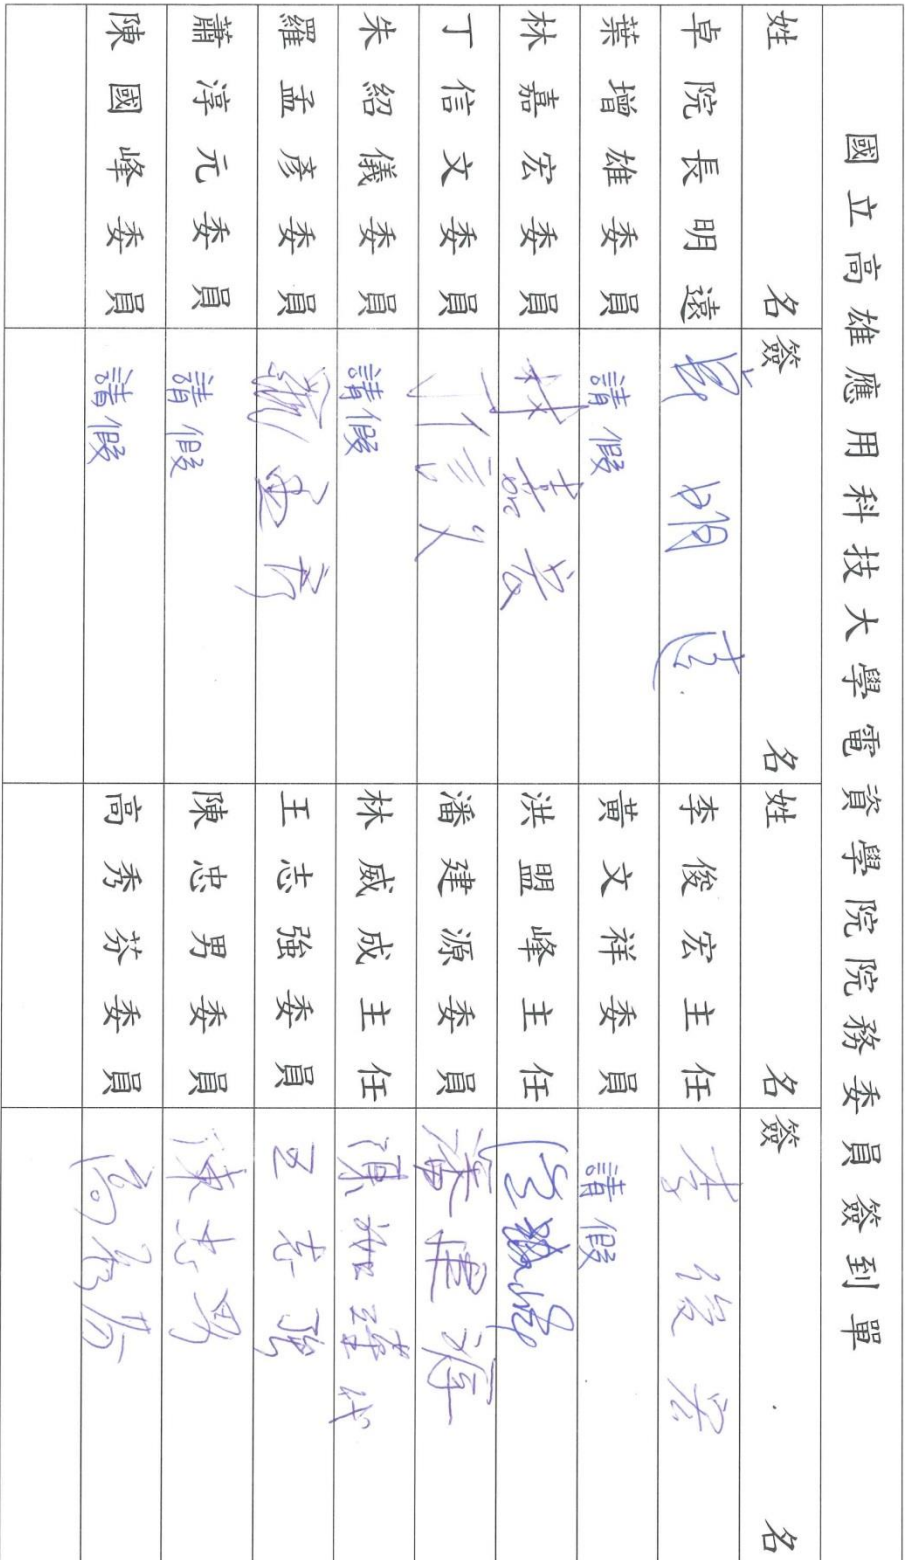 國立高雄應用科技大學電資學院院務委員簽到單
姓名 簽名 姓名 簽名
卓院長明遠 卓明遠 李俊宏主任 李俊宏
葉增雄委員 請假 黃文祥委員 請假
林嘉宏委員 林嘉宏 洪盟峰主任 洪盟峰
丁信文委員 丁信文 潘建源委員 潘建源
朱紹儀委員 請假 林威成主任 陳
羅孟彥委員 羅孟彥 王志強委員 王志強
蕭淳元委員 請假 陳忠男委員 陳忠男
陳國峰委員 請假 高秀芬委員 高秀芬